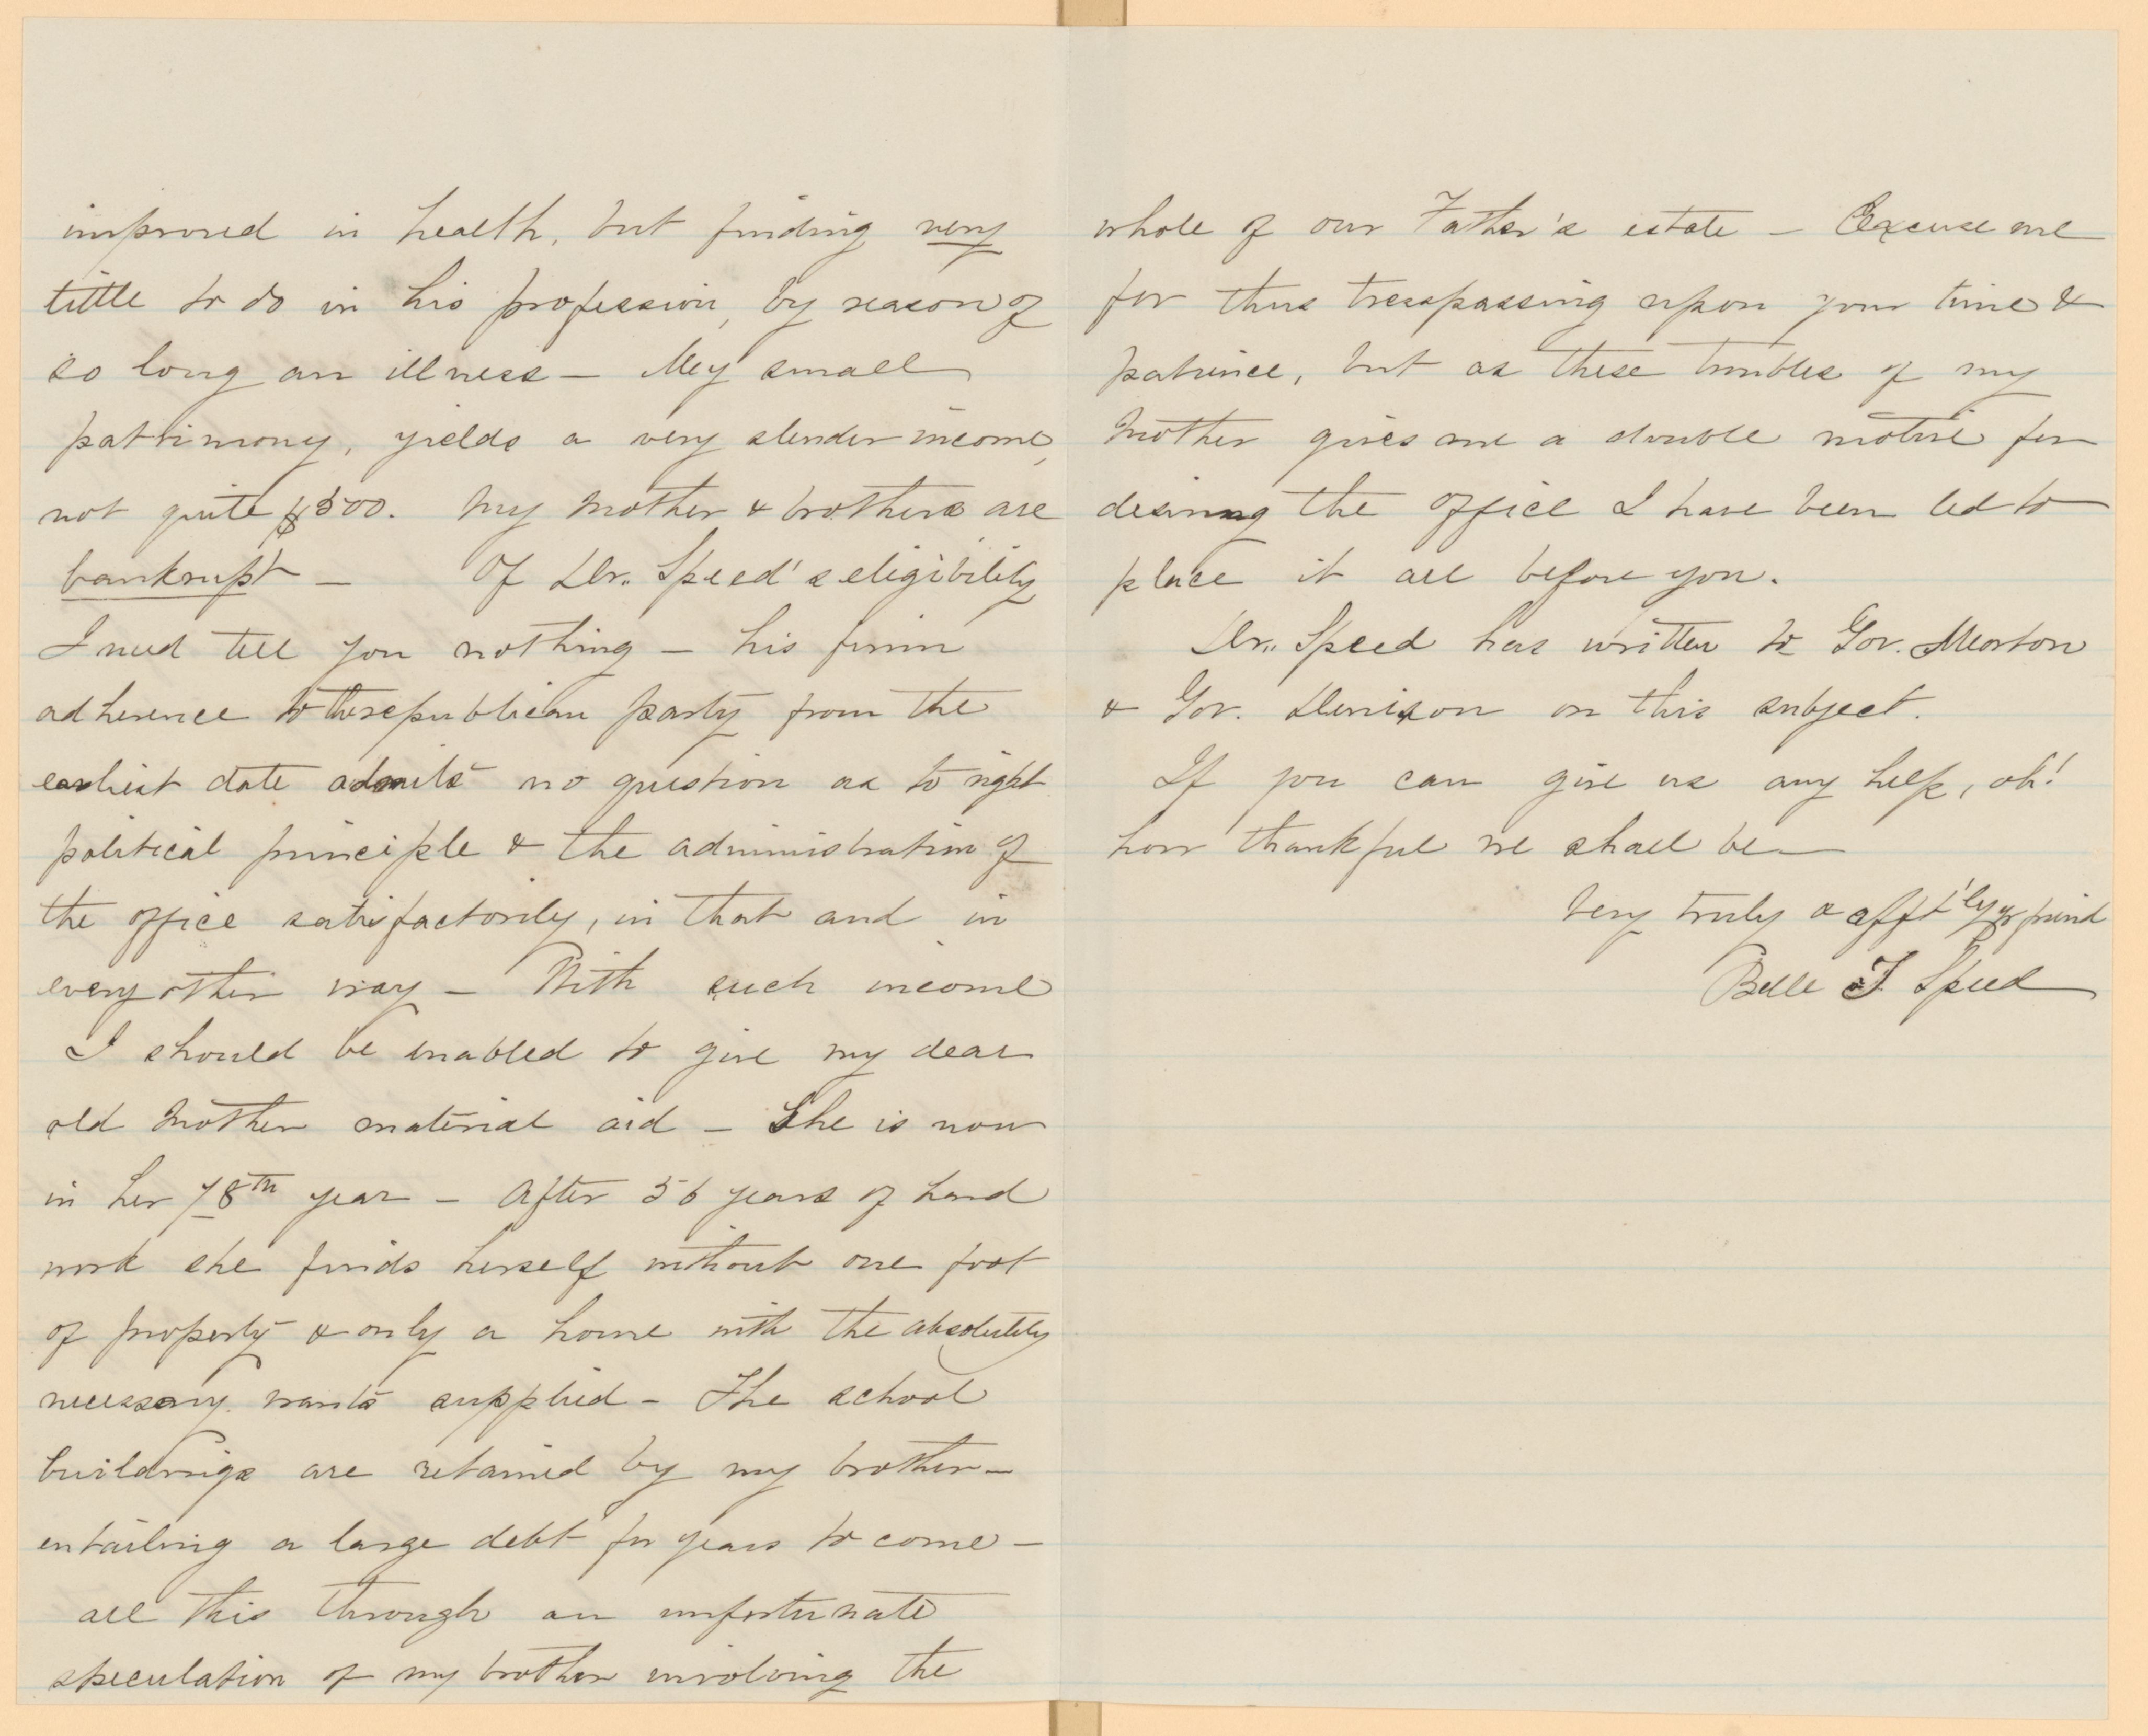 improved in health, but finding very
little to do in his profession, by reason of
so long an illness – My small
patrimony, yields a very slender income,
not quite $500. My Mother & brothers are
bankrupt – Of Dr. Speed's eligibility
I need tell you nothing – his firm
adherence to the republican party from the
earliest date admits no question as to right
political principle & the administration of
the office satisfactorily, in that and in
every other way – With such income
I should be enabled to give my dear
old Mother material aid – She is now
in her 78th year – After 56 years of hard
work she finds herself without one foot
of property & only a home with the absolutely
necessary wants supplied – The school
buildings are retained by my brother –
entailing a large debt for years to come –
all this through an unfortunate
speculation of my brother involving the
whole of our Father's estate – Excuse me
for thus tresspassing upon your time &
patience, but as these troubles of my
Mother gives me a double motive for
desiring the office I have been led to
place it all before you.
Dr. Speed has written to Gov. Morton
& Gov. Denison on this subject.
If you can give us any help, oh!
how thankful we shall be –
Very truly & afft'ly yr friend
Belle T. Speed